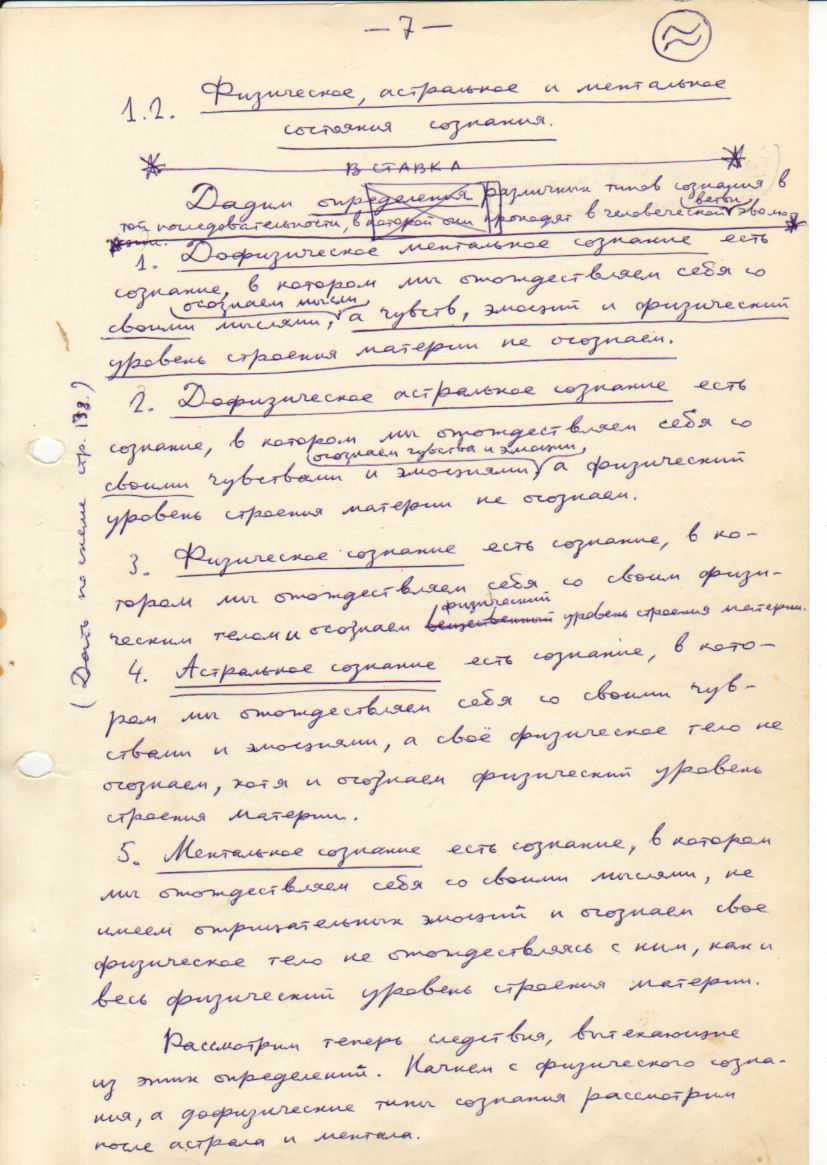 — 7 —
1.2. Физическое, астральное и ментальное
состояния сознания.
ВСТАВКА
Дадим определения различных типов сознания в
той последовательности, в которой они проходят в человеческой ветви эволю-
ции.
1. Дофизическое ментальное сознание есть
сознание, в котором мы отождествляем себя со
осознаем мысли,
своими мыслями, а чувств, эмоций и физический
уровень строения материи не осознаем.
2. Дофизическое астральное сознание есть
сознание, в котором мы отождествляем себя со
осознаем чувства и эмоции,
своими чувствами и эмоциями, а физический
уровень строения материи не осознаем.
3. Физическое сознание есть сознание, в ко-
тором мы отождествляем себя со своим физи-
физический
ческим телом и осознаем вещественный уровень строения материи.
4. Астральное сознание есть сознание, в кото-
ром мы отождествляем себя со своими чув-
ствами и эмоциями, а своё физическое тело не
осознаем, хотя и осознаем физический уровень
строения материи.
5. Ментальное сознание есть сознание, в котором
мы отождествляем себя со своими мыслями, не
имеем отрицательных эмоций и осознаем свое
физическое тело не отождествляясь с ним, как и
весь физический уровень строения материи.
Рассмотрим теперь следствия, вытекающие
из этих определений. Начнем с физического созна-
ния, а дофизические типы сознания рассмотрим
после астрала и ментала.
(Дать по схеме стр. 138.)